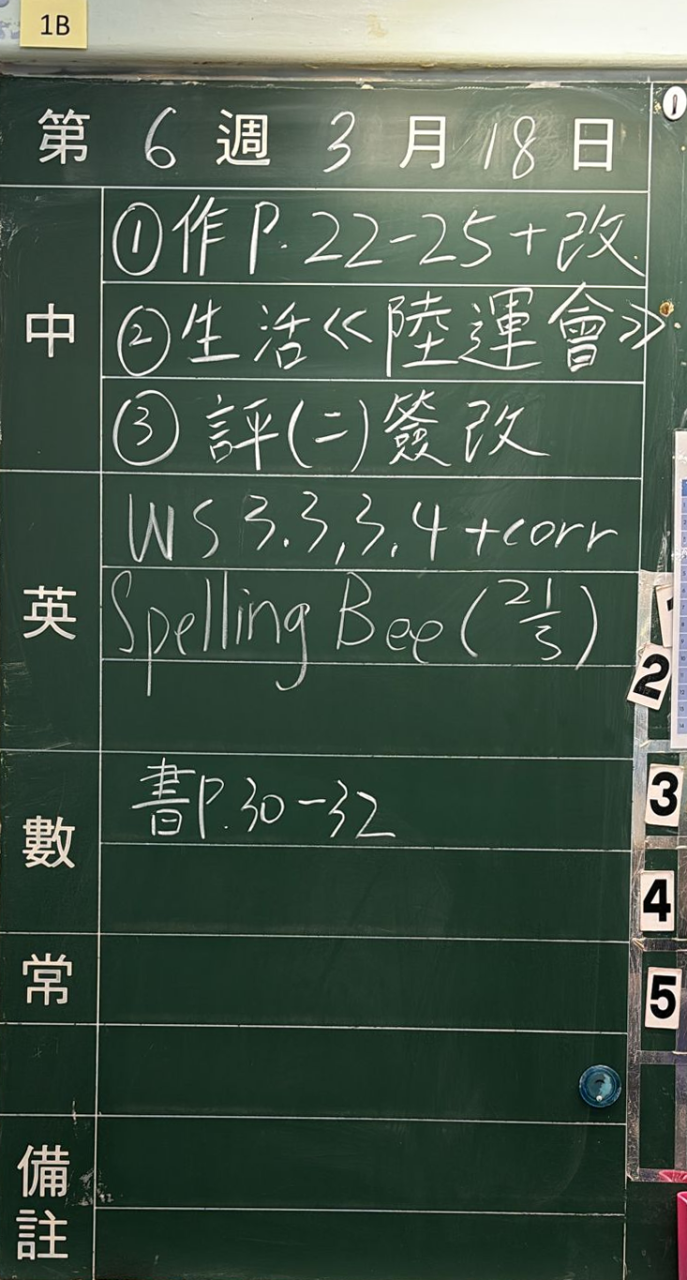 1B
第 6 週 3 月 18 日
中
①作 P. 22-25 + 改
②生活《陸運會》
③評(二)簽改
英
WS 3.3, 3.4 + corr
Spelling Bee (21/3)
數
書P.30-32
常
備註
1
2
3
4
5